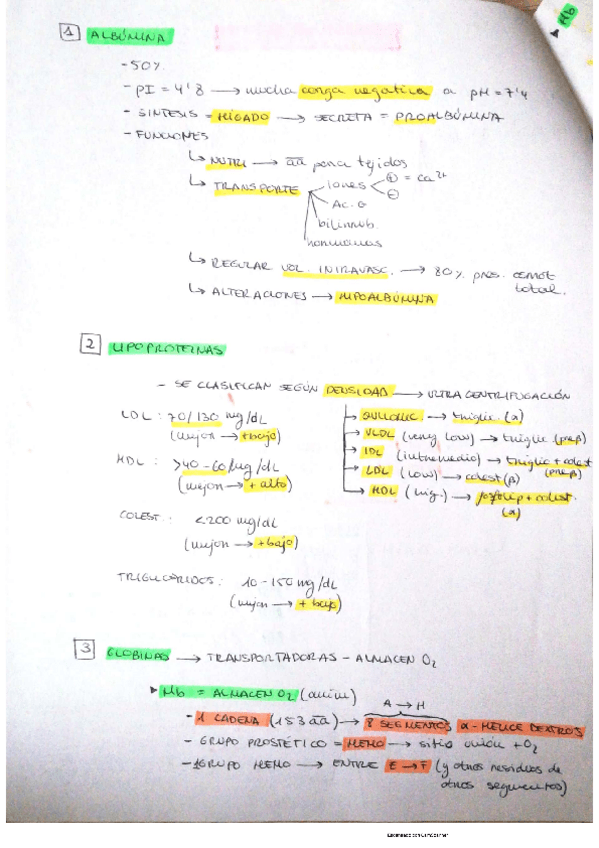 1 ALBÚMINA
Mb
- 50%
- pI = 4'8 → mucha carga negativa a pH = 7'4
- SINTESIS = HÍGADO → SECRETA = PROALBÚMINA
- FUNCIONES
↳ NUTRI → aa para tejidos
↳ TRANSPORTE iones ⊕ = Ca²⁺
⊖
Ac. G
bilirrub.
hormonas
↳ REGULAR VOL. INTRAVASC. → 80% pres. osmot
total.
↳ ALTERACIONES → HIPOALBÚMINA
2 LIPOPROTEINAS
- SE CLASIFICAN SEGÚN DENSIDAD → ULTRACENTRIFUGACIÓN
LDL: 70/130 mg/dL
(mejor → + bajo)
HDL: >40-60 mg/dL
(mejor → + alto)
COLEST.: <200 mg/dL
(mejor → + bajo)
TRIGLICÉRIDOS: 10-150 mg/dL
(mejor → + bajo)
QUILOMIC. → triglic. (α)
VLDL (very low) → triglic (preβ)
IDL (intermedio) → triglic + colest
(preβ)
LDL (low) → colest (β)
HDL (hig.) → fosfolip + colest.
(α)
3 GLOBINAS → TRANSPORTADORAS - ALMACEN O₂
Mb = ALMACEN O₂ (anim)
A → H
- 1 CADENA (153 aa) → 8 SEGMENTOS α-HÉLICE DEXTROS
- GRUPO PROSTÉTICO = HEMO → sitio unión + O₂
- 1GRUPO HEMO → ENTRE E → F (y otros residuos de
otros segmentos)
Escaneado con CamScanner